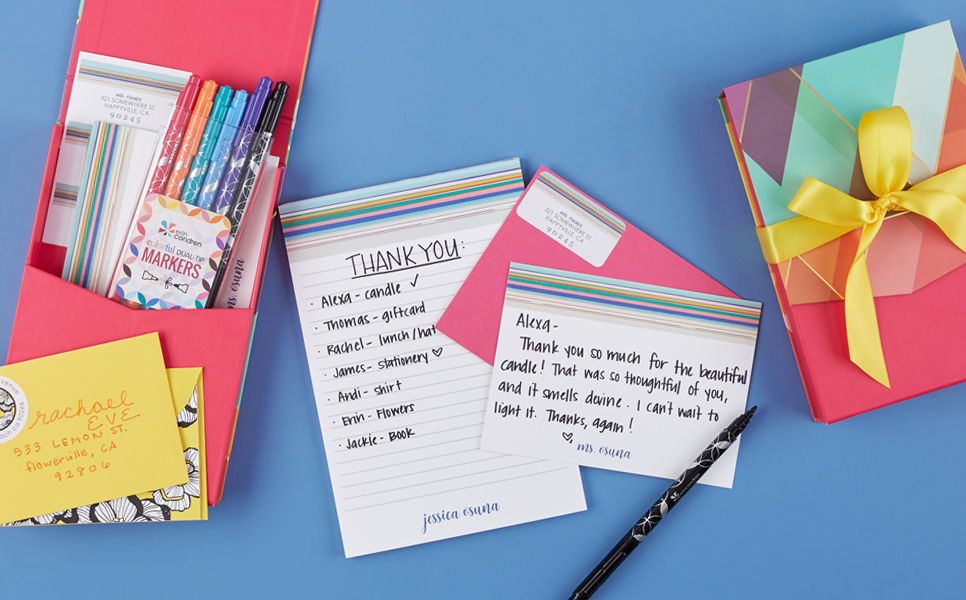 ms. osuna
321 SOMEWHERE ST.
HAPPYVILLE, CA
90245
erin
condren
colorful DUAL-TIP
MARKERS
ms. osuna
rachael
EVE
533 LEMON ST.
flowerville, CA
92806
THANK YOU:
· Alexa - candle ✓
· Thomas - giftcard
· Rachel - lunch/hat
· James - stationery ♡
· Andi - shirt
· Erin - Flowers
· Jackie - Book
jessica osuna
ms. osuna
321 SOMEWHERE ST.
HAPPYVILLE, CA
90245
Alexa-
Thank you so much for the beautiful
candle! That was so thoughtful of you,
and it smells devine. I can't wait to
light it. Thanks, again!
♡, ms. osuna